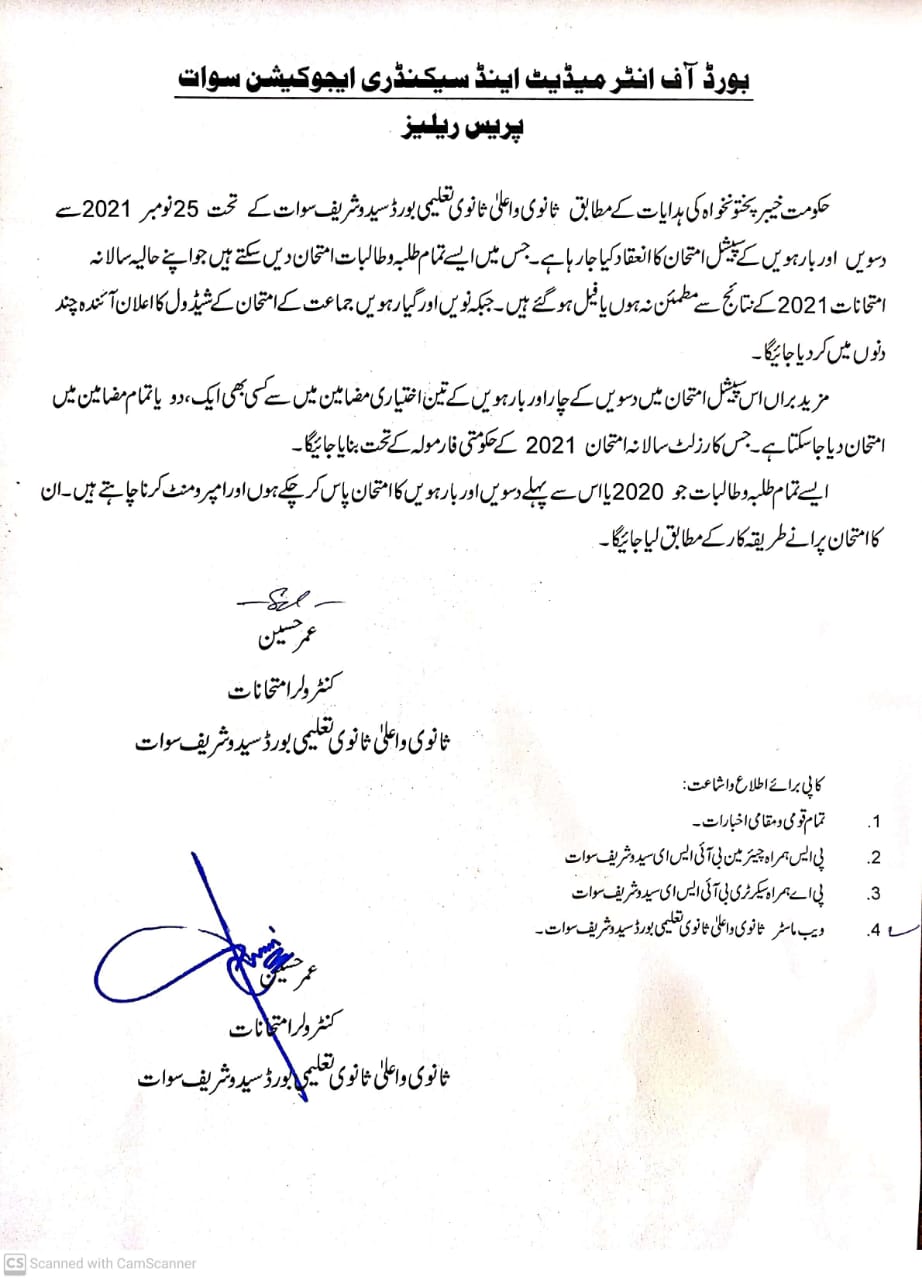 بورڈ آف انٹر میڈیٹ اینڈ سیکنڈری ایجوکیشن سوات
پریس ریلیز
حکومت خیبر پختونخواہ کی ہدایات کے مطابق ثانوی و اعلیٰ ثانوی تعلیمی بورڈ سیدو شریف سوات کے تحت 25 نومبر 2021 سے
دسویں اور بارہویں کے سپیشل امتحان کا انعقاد کیا جارہا ہے۔ جس میں ایسے تمام طلبہ و طالبات امتحان دیں سکتے ہیں جو اپنے حالیہ سالانہ
امتحانات 2021 کے نتائج سے مطمئن نہ ہوں یا فیل ہو گئے ہیں۔ جبکہ نویں اور گیارہویں جماعت کے امتحان کے شیڈول کا اعلان آئندہ چند
دنوں میں کر دیا جائیگا۔
مزید براں اس سپیشل امتحان میں دسویں کے چار اور بارہویں کے تین اختیاری مضامین میں سے کسی بھی ایک، دو یا تمام مضامین میں
امتحان دیا جا سکتا ہے۔ جس کا رزلٹ سالانہ امتحان 2021 کے حکومتی فارمولہ کے تحت بنایا جائیگا۔
ایسے تمام طلبہ و طالبات جو 2020 یا اس سے پہلے دسویں اور بارہویں کا امتحان پاس کر چکے ہوں اور امپرومنٹ کرنا چاہتے ہیں۔ ان
کا امتحان پرانے طریقہ کار کے مطابق لیا جائیگا۔
عمر حسین
کنٹرولر امتحانات
ثانوی و اعلیٰ ثانوی تعلیمی بورڈ سیدو شریف سوات
کاپی برائے اطلاع و اشاعت:
1. تمام قومی و مقامی اخبارات۔
2. پی ایس ہمراہ چیئرمین بی آئی ایس ای سیدو شریف سوات
3. پی اے ہمراہ سیکرٹری بی آئی ایس ای سیدو شریف سوات
4. ویب ماسٹر ثانوی و اعلیٰ ثانوی تعلیمی بورڈ سیدو شریف سوات۔
عمر حسین
کنٹرولر امتحانات
ثانوی و اعلیٰ ثانوی تعلیمی بورڈ سیدو شریف سوات
CS Scanned with CamScanner